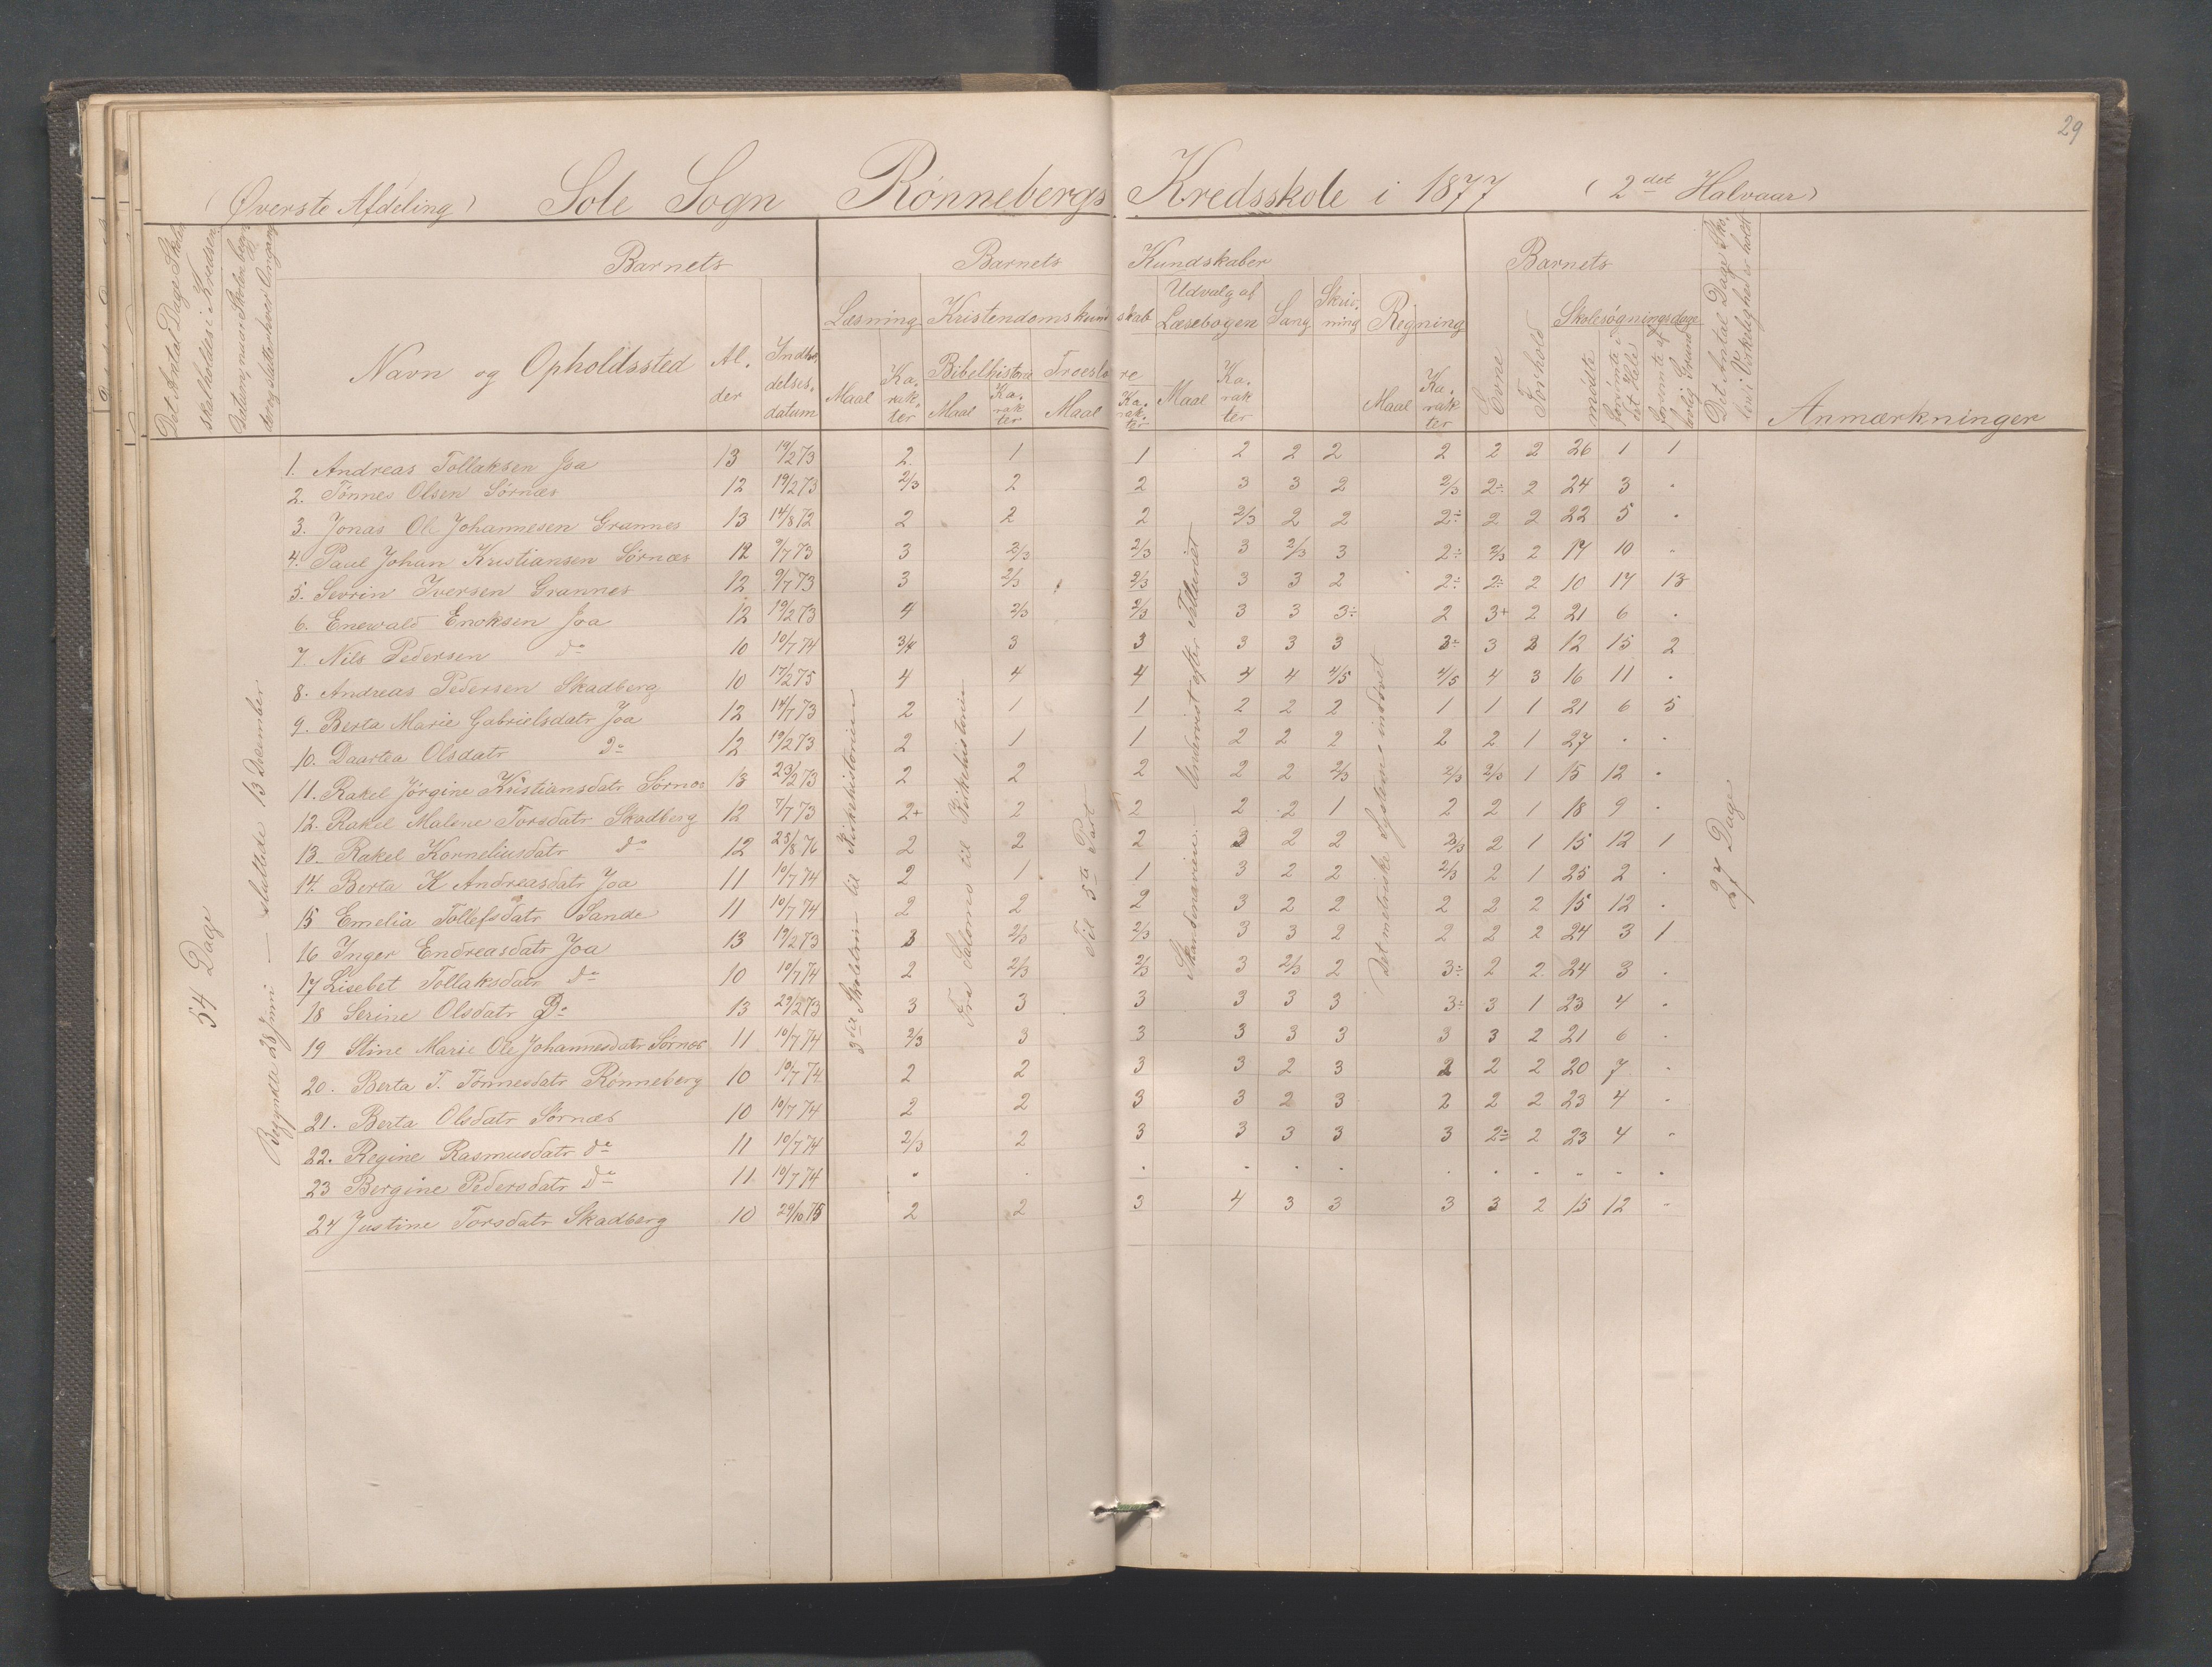 29
(Øverste Afdeling) Sole Sogn Rønnebergs Kredsskole i 1877 (2det Halvaar)
Det Antal Dage Skole skal holdes i Kredsen
Datum, naar Skolen begynder og slutter hver Omgang
Barnets
Navn og Opholdssted
Alder
Indtrædelsesdatum
Barnets Kundskaber
Læsning
Maal
Karakter
Kristendomskundskab
Bibelhistorie
Maal
Karakter
Troeslære
Maal
Karakter
Udvalg af Læsebogen
Maal
Karakter
Sang
Skrivning
Regning
Maal
Karakter
Barnets
Evne
Forhold
Skolesøgningsdage
mødte
forsømte i det Hele
forsømte af lovlig Grund
Det Antal Dage Skolen i Virkelighed er holdt
Anmærkninger
54 Dage
Begyndte 28 Juni — sluttede 13 December
3die Skoletrin til Kirkehistorien
Fra Salomo til Kirkehistorien
Til 5te Part
Skandinavien. — Undervist efter Telluriet
Det metriske System inddøvet
27 Dage
1. Andreas Tollaksen Joa 13 19/2 73 2 1 1 2 2 2 2 2 2 26 1 1
2. Tønnes Olsen Sørnæs 12 19/2 73 2/3 2 2 3 3 2 2/3 2÷ 2 24 3 .
3. Jonas Ole Johannesen Grannes 13 14/8 72 2 2 2 2/3 2 2 2÷ 2 2 22 5 .
4. Paul Johan Kristiansen Sørnæs 12 9/7 73 3 2/3 2/3 3 2/3 3 2÷ 2/3 2 17 10 .
5. Sevrin Iversen Grannes 12 9/7 73 3 2/3 2/3 3 3 2 2÷ 2÷ 2 10 17 13
6. Enewald Enoksen Joa 12 19/2 73 4 2/3 2/3 3 3 3÷ 2 3+ 2 21 6 .
7. Nils Pedersen do 10 10/7 74 3/4 3 3 3 3 3 3÷ 3 3 12 15 2
8. Andreas Pedersen Skadberg 10 17/2 75 4 4 4 4 4 4/5 4/5 4 3 16 11 .
9. Berta Marie Gabrielsdatr Joa 12 14/7 73 2 1 1 2 2 2 1 1 1 21 6 5
10. Daartea Olsdatr do 12 19/2 73 2 1 1 2 2 2 2 2 1 27 . .
11. Rakel Jørgine Kristiansdatr Sørnæs 13 23/2 73 2 2 2 2 2 2/3 2/3 2/3 1 15 12 .
12. Rakel Malene Torsdatr Skadberg 12 7/7 73 2+ 2 2 2 2 1 2 2 1 18 9 .
13. Rakel Korneliusdatr do 12 25/8 76 2 2 2 3 2 2 2/3 2 1 15 12 1
14. Berta K Andreasdatr Joa 11 10/7 74 2 1 1 3 2 2 2/3 2 1 25 2 .
15 Emelia Tollefsdatr Sande 11 10/7 74 2 2 2 3 2 2 2 2 2 15 12 .
16 Inger Endreasdatr Joa 13 19/2 73 3 2/3 2/3 3 3 2 2 2 2 24 3 1
17 Lisebet Tollaksdatr do 10 10/7 74 2 2/3 2/3 3 2/3 2 3÷ 2 2 24 3 .
18 Serine Olsdatr Do 13 29/2 73 3 3 3 3 3 3 3÷ 3 1 23 4 .
19 Stine Marie Ole Johannesdatr Sørnæs 11 10/7 74 2/3 3 3 3 3 3 3 3 2 21 6 .
20. Berta T. Tønnesdatr Rønneberg 10 10/7 74 2 2 3 3 2 3 2 2 2 20 7 .
21. Berta Olsdatr Sørnæs 10 10/7 74 2 2 3 3 2 3 2 2 2 23 4 .
22. Regine Rasmusdatr do 11 10/7 74 2/3 2 3 3 3 3 3 2÷ 2 23 4 .
23 Bergine Pedersdatr do 11 10/7 74 . . . . . . . . . . . .
24 Justine Torsdatr Skadberg 10 29/10 75 2 2 3 4 3 3 3 3 2 15 12 .